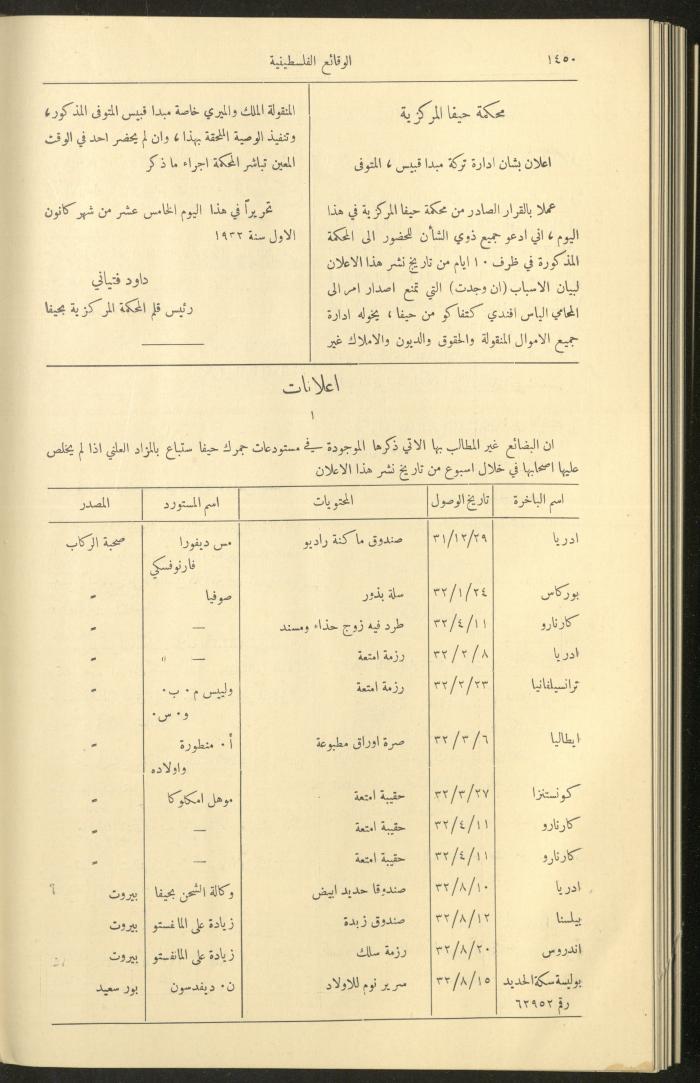 ١٤٥٠
الوقائع الفلسطينية
محكمة حيفا المركزية
اعلان بشان ادارة تركة مبدا قبيس ، المتوفى
عملا بالقرار الصادر من محكمة حيفا المركزية في هذا
اليوم ، اني ادعو جميع ذوي الشأن للحضور الى المحكمة
المذكورة في ظرف ١٠ ايام من تاريخ نشر هذا الاعلان
لبيان الاسباب (ان وجدت) التي تمنع اصدار امر الى
المحامي الياس افندي كتفاكو من حيفا ، يخوله ادارة
جميع الاموال المنقولة والحقوق والديون والاملاك غير
المنقولة الملك والميري خاصة مبدا قبيس المتوفى المذكور ،
وتنفيذ الوصية الملحقة بهذا ، وان لم يحضر احد في الوقت
المعين تباشر المحكمة اجراء ما ذكر
تحريراً في هذا اليوم الخامس عشر من شهر كانون
الاول سنة ١٩٣٢
داود فتياني
رئيس قلم المحكمة المركزية بحيفا
اعلانات
١
ان البضائع غير المطالب بها الاتي ذكرها الموجودة في مستودعات جمرك حيفا ستباع بالمزاد العلني اذا لم يخلص
عليها اصحابها في خلال اسبوع من تاريخ نشر هذا الاعلان
اسم الباخرة تاريخ الوصول المحتويات اسم المستورد المصدر
ادريا ٣١/١٢/٢٩ صندوق ماكنة راديو مس ديفورا صحبة الركاب
فارنوفسكي
بوركاس ٣٢/١/٢٤ سلة بذور صوفيا "
كارنارو ٣٢/٤/١١ طرد فيه زوج حذاء ومسند — "
ادريا ٣٢/٢/٨ رزمة امتعة — "
ترانسيلفانيا ٣٢/٢/٢٣ رزمة امتعة ولييس م٠ ب٠ "
و٠ س٠
ايطاليا ٣٢/٣/٦ صرة اوراق مطبوعة أ٠ منطورة "
واولاده
كونستنزا ٣٢/٣/٢٧ حقيبة امتعة موهل امكلوكا "
كارنارو ٣٢/٤/١١ حقيبة امتعة — "
كارنارو ٣٢/٤/١١ حقيبة امتعة — "
ادريا ٣٢/٨/١٠ صندوقا حديد ابيض وكالة الشحن بحيفا بيروت
بيلسنا ٣٢/٨/١٢ صندوق زبدة زيادة على المانفستو بيروت
اندروس ٣٢/٨/٢٠ رزمة سلك زيادة على المانفستو بيروت
بوليسة سكة الحديد ٣٢/٨/١٥ سرير نوم للاولاد ن٠ ديفدسون بور سعيد
رقم ٦٢٩٥٢